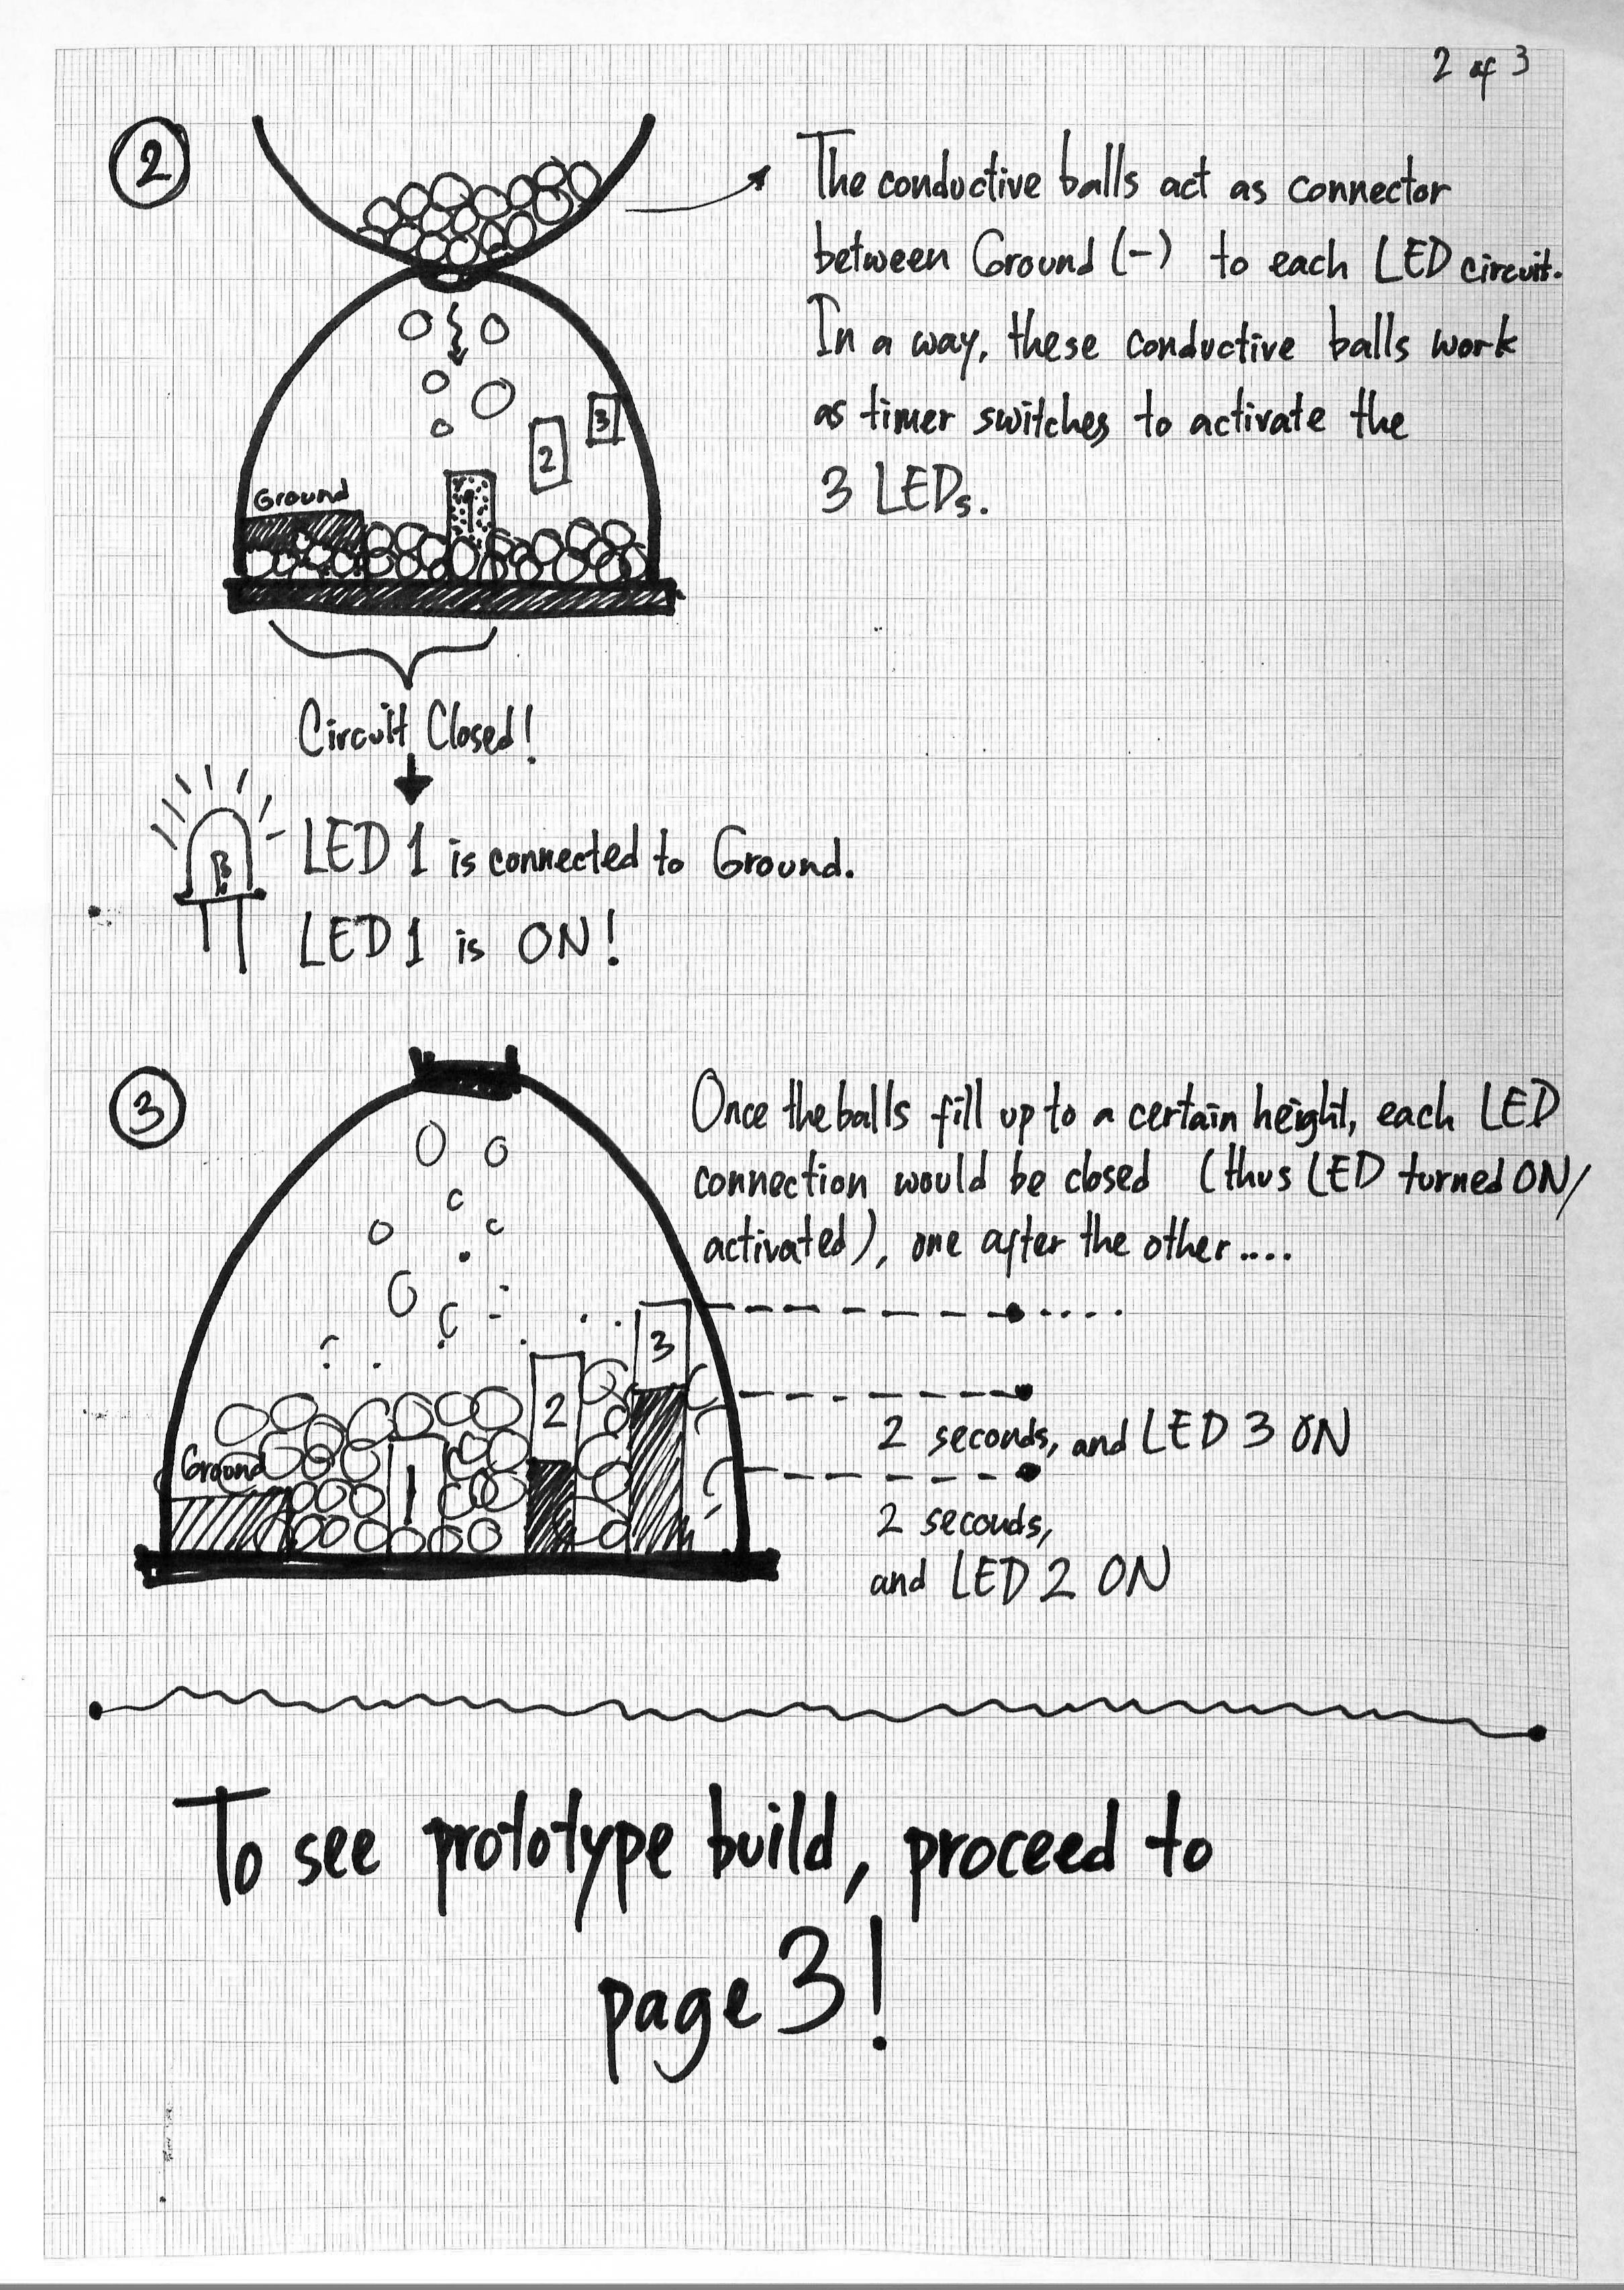 2 of 3
2
The conductive balls act as connector
between Ground (-) to each LED circuit.
In a way, these conductive balls work
as timer switches to activate the
3 LEDs.
3
2
Ground
Circuit Closed!
LED 1 is connected to Ground.
LED 1 is ON!
3
Once the balls fill up to a certain height, each LED
connection would be closed (thus LED turned ON/
activated), one after the other....
3
2
Ground
1
2 seconds, and LED 3 ON
2 seconds,
and LED 2 ON
To see prototype build, proceed to
page 3!